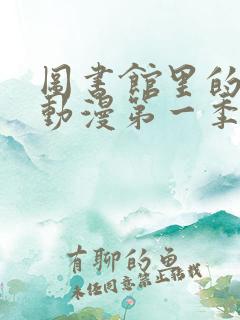 圖書館里的
動漫第一季
有聊的魚
未任同意禁止轉載